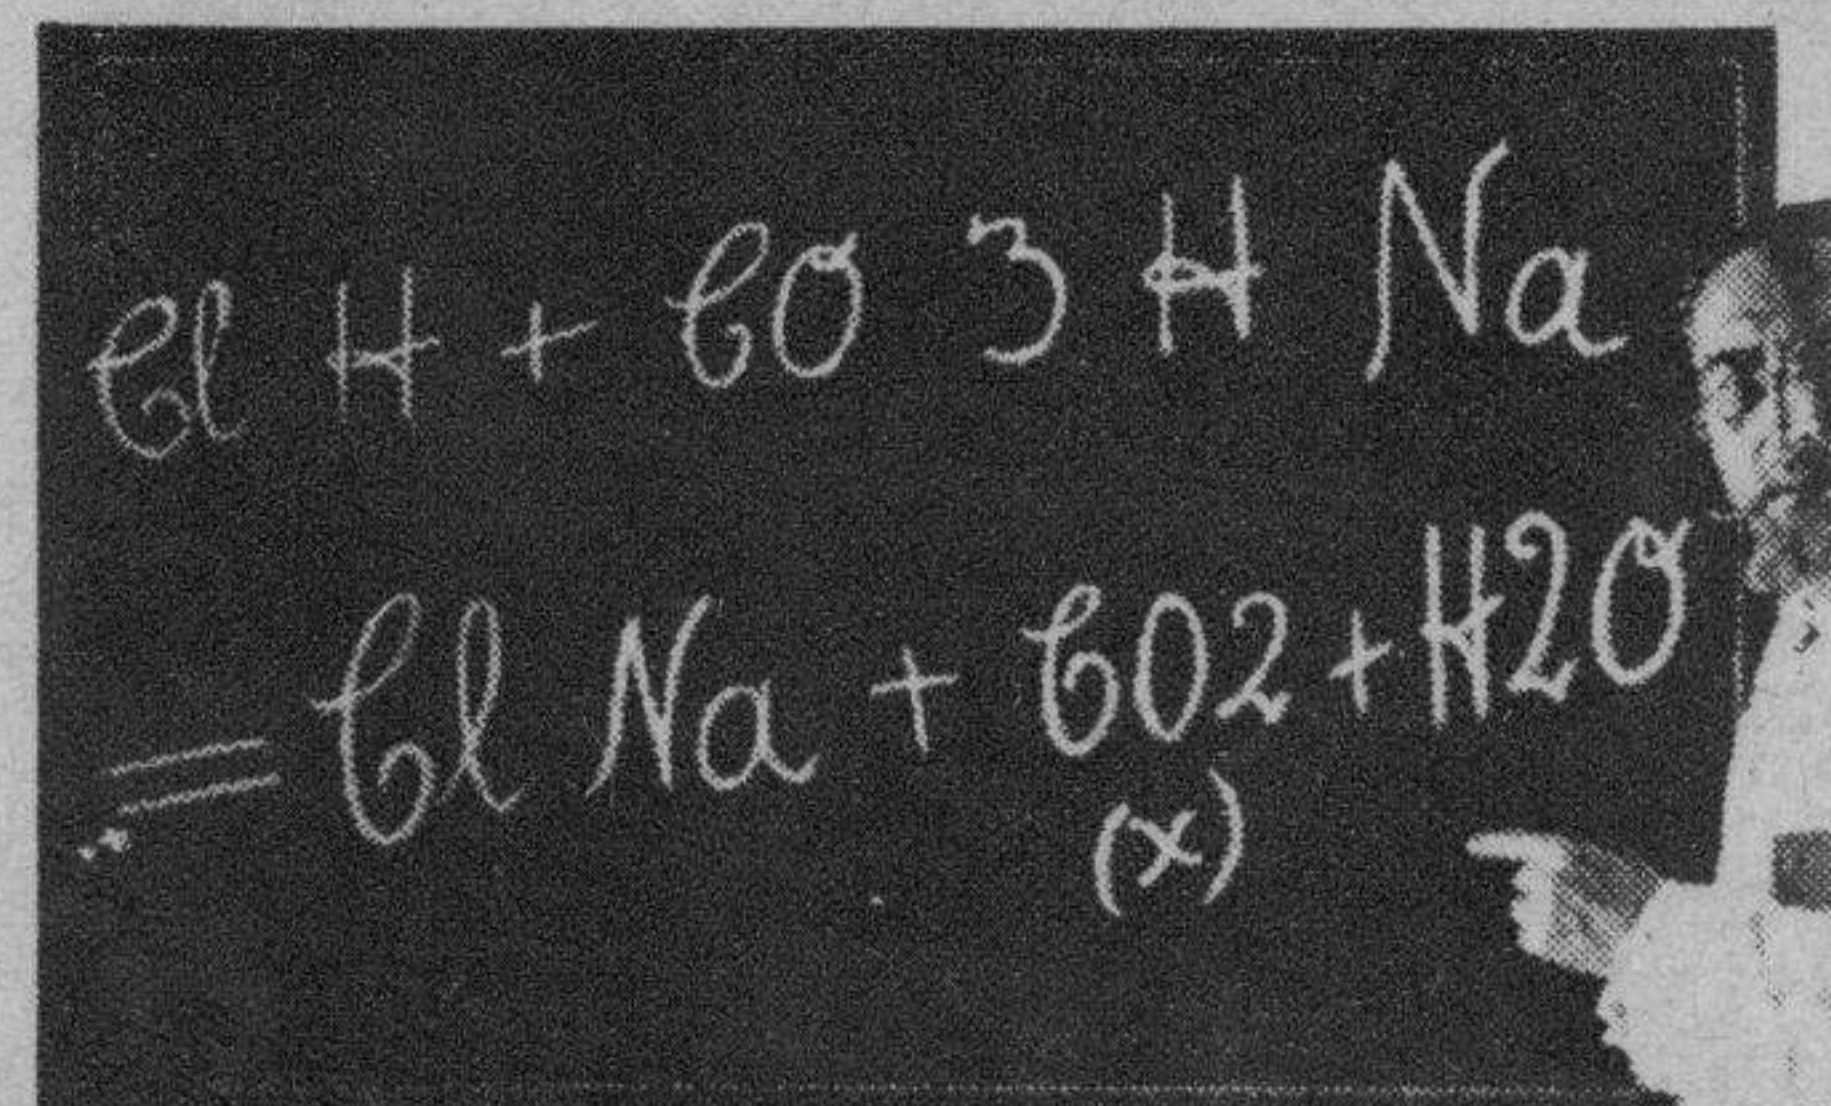 Cl H + CO 3 H Na
= Cl Na + CO2 + H2O
(x)